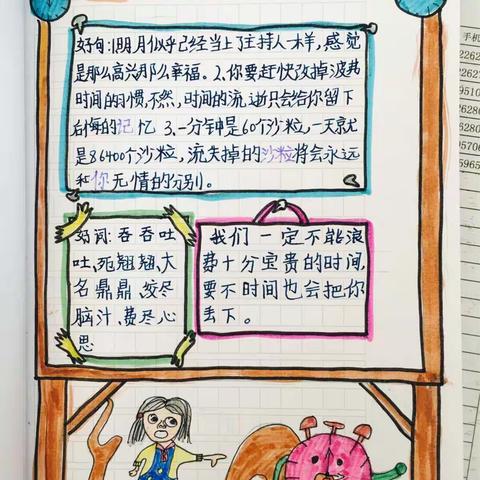 好句:1朋月似乎己经当上了主持人一样,感觉
是那么高兴那么幸福。2、你要赶快改掉浪费
时间的习惯,不然,时间的流逝只会给你留下
后悔的记忆 3、一分钟是60个沙粒,一天就
是86400个沙粒,流失掉的沙粒将会永远
和你无情的分别。
好词:吞吞吐
吐、死翘翘、大
名鼎鼎、绞尽
脑汁、费尽心
思
我们一定不能浪
费十分宝贵的时间,
要不时间也会把你
丢下。
手机
2262
2263
9510
2628
2628
5706
5965